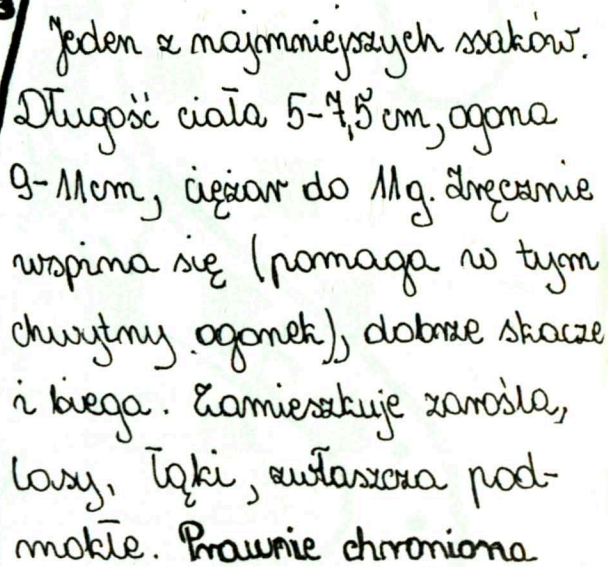 Jeden z najmniejszych ssaków.
Długość ciała 5-7,5 cm, ogona
9-11cm, ciężar do 11g. Zręcznie
wspina się (pomaga w tym
chwytny ogonek), dobrze skacze
i biega. Zamieszkuje zarośla,
lasy, łąki, zwłaszcza pod-
mokłe. Prawnie chroniona